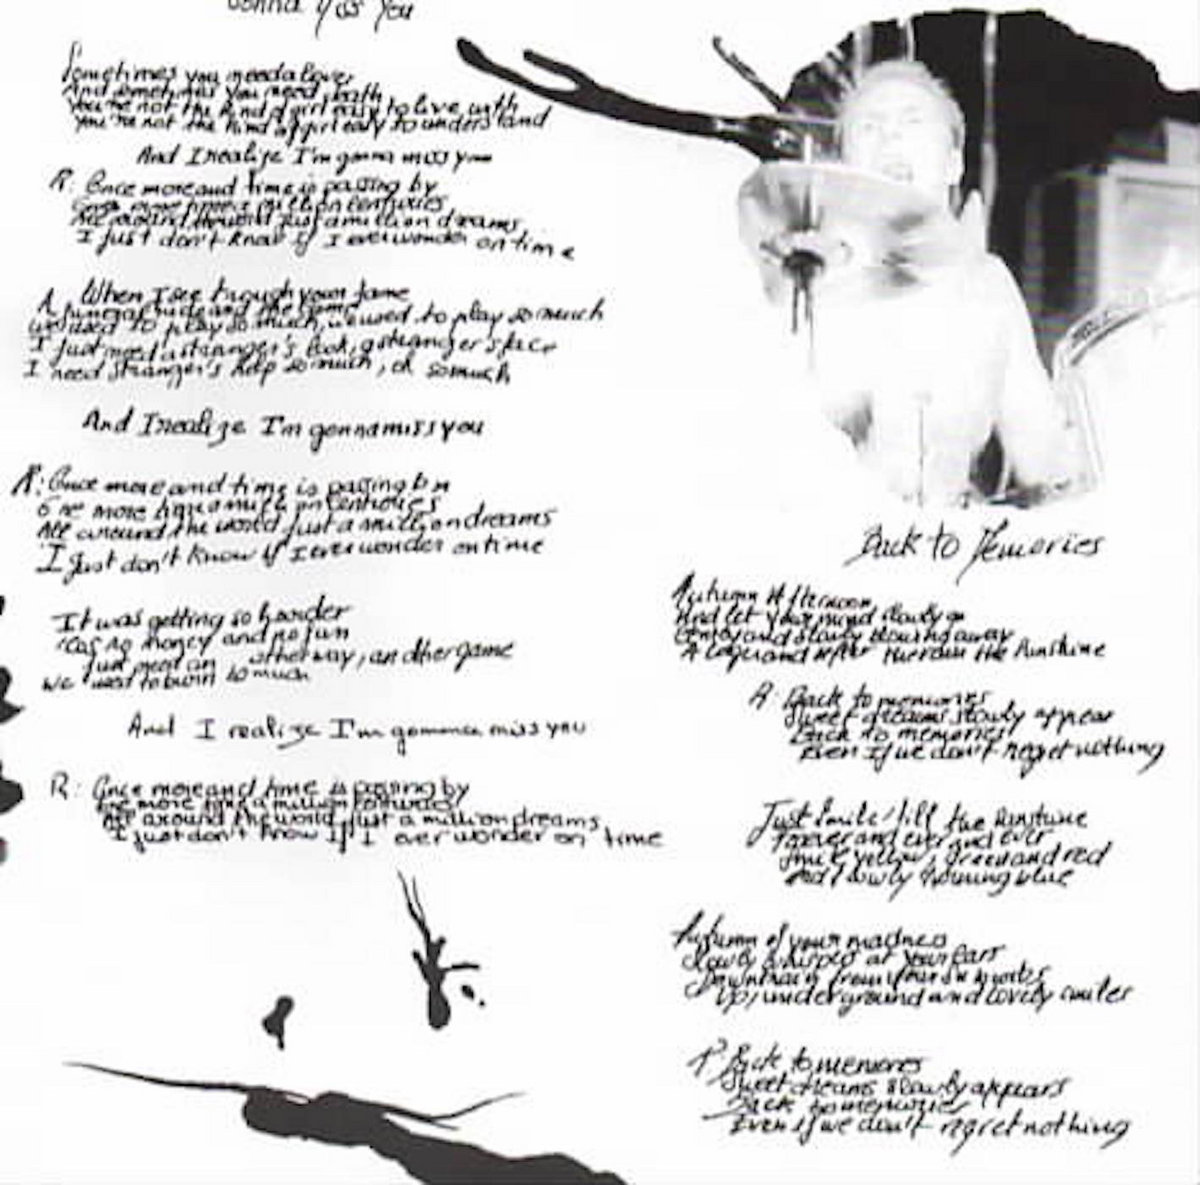 Gonna Miss You
Sometimes you need a lover
And sometimes you need
You're not the kind of girl easy to live with
You're not the kind of girl easy to understand
And I realize I'm gonna miss you
R: Once more and time is passing by
One more time a million centuries
All around the world just a million dreams
I just don't know if I ever wonder on time
When I see trough your fame
A funeral and the game
We used to play so much, we used to play so much
I just need a stranger's look, a stranger's face
I need stranger's help so much, oh so much
And I realize I'm gonna miss you
R: Once more and time is passing by
One more time a million centuries
All around the world just a million dreams
I just don't know if I ever wonder on time
It was getting so harder
'cos no money and no fun
Just need an other way, an other game
We used to burn so much
And I realize I'm gonnna miss you
R: Once more and time is passing by
One more time a million centuries
All around the world just a million dreams
I just don't know if I ever wonder on time
Back to Memories
Autumn Afternoon
And let your mind slowly go
and slowly blowing away
A after tuerrain the sunshine
R: Back to memories
Sweet dreams slowly appear
Back to memories
Even if we don't regret nothing
Just smile till the sunshine
Forever and ever and ever
yellow, green and red
And slowly blue
Autumn of your madness
Slowly whisper at your ears
Down from your
Up, underground and lovely smiles
R: Back to memories
Sweet dreams slowly appears
Back to memories
Even if we don't regret nothing